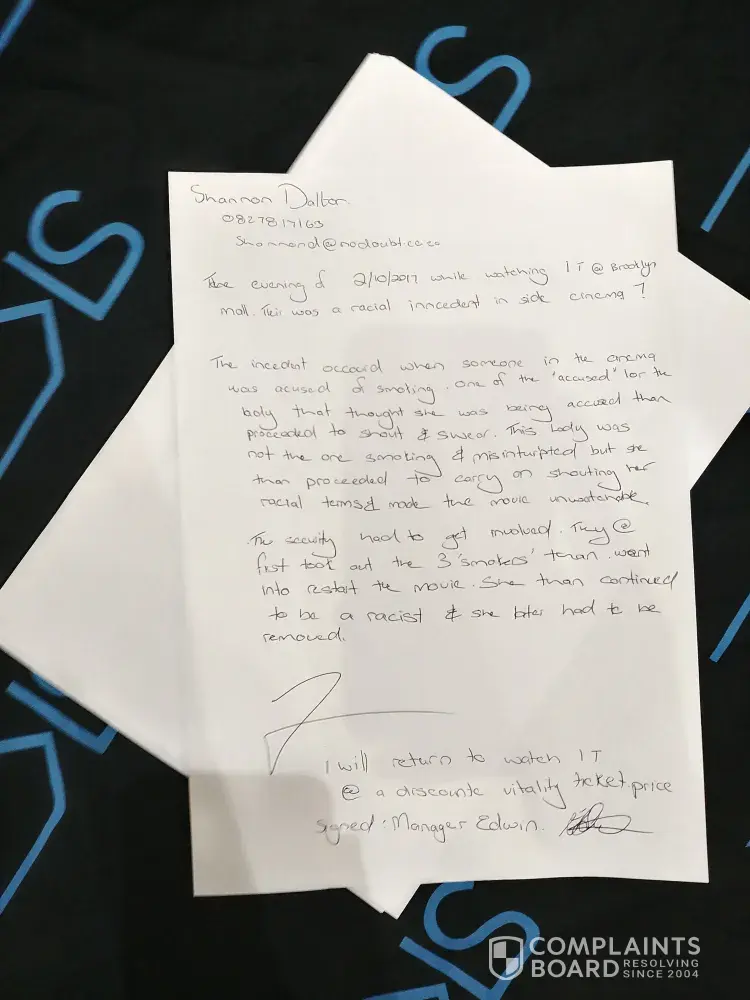 Shannon Dalton
0827817163
Shannond@nodoubt.co.za
The evening of 2/10/2017 while watching IT @ Brooklyn
mall. Their was a racial inncedent in side cinema 7
The incedent occourd when someone in the cinema
was acused of smoking. One of the "accused" lor the
lady that thought she was being accused than
proceeded to shout & swear. This lady was
not the one smoking & misinturpted but she
than proceeded to carry on shouting her
racial terms & made the movie unwatchable.
The security had to get involved. They @
first took out the 3 'smokers' than went
into restart the movie. She than continued
to be a racist & she later had to be
removed.
I will return to watch IT
@ a discounte vitality ticket price
Signed: Manager Edwin.
COMPLAINTS
BOARD RESOLVING
SINCE 2004